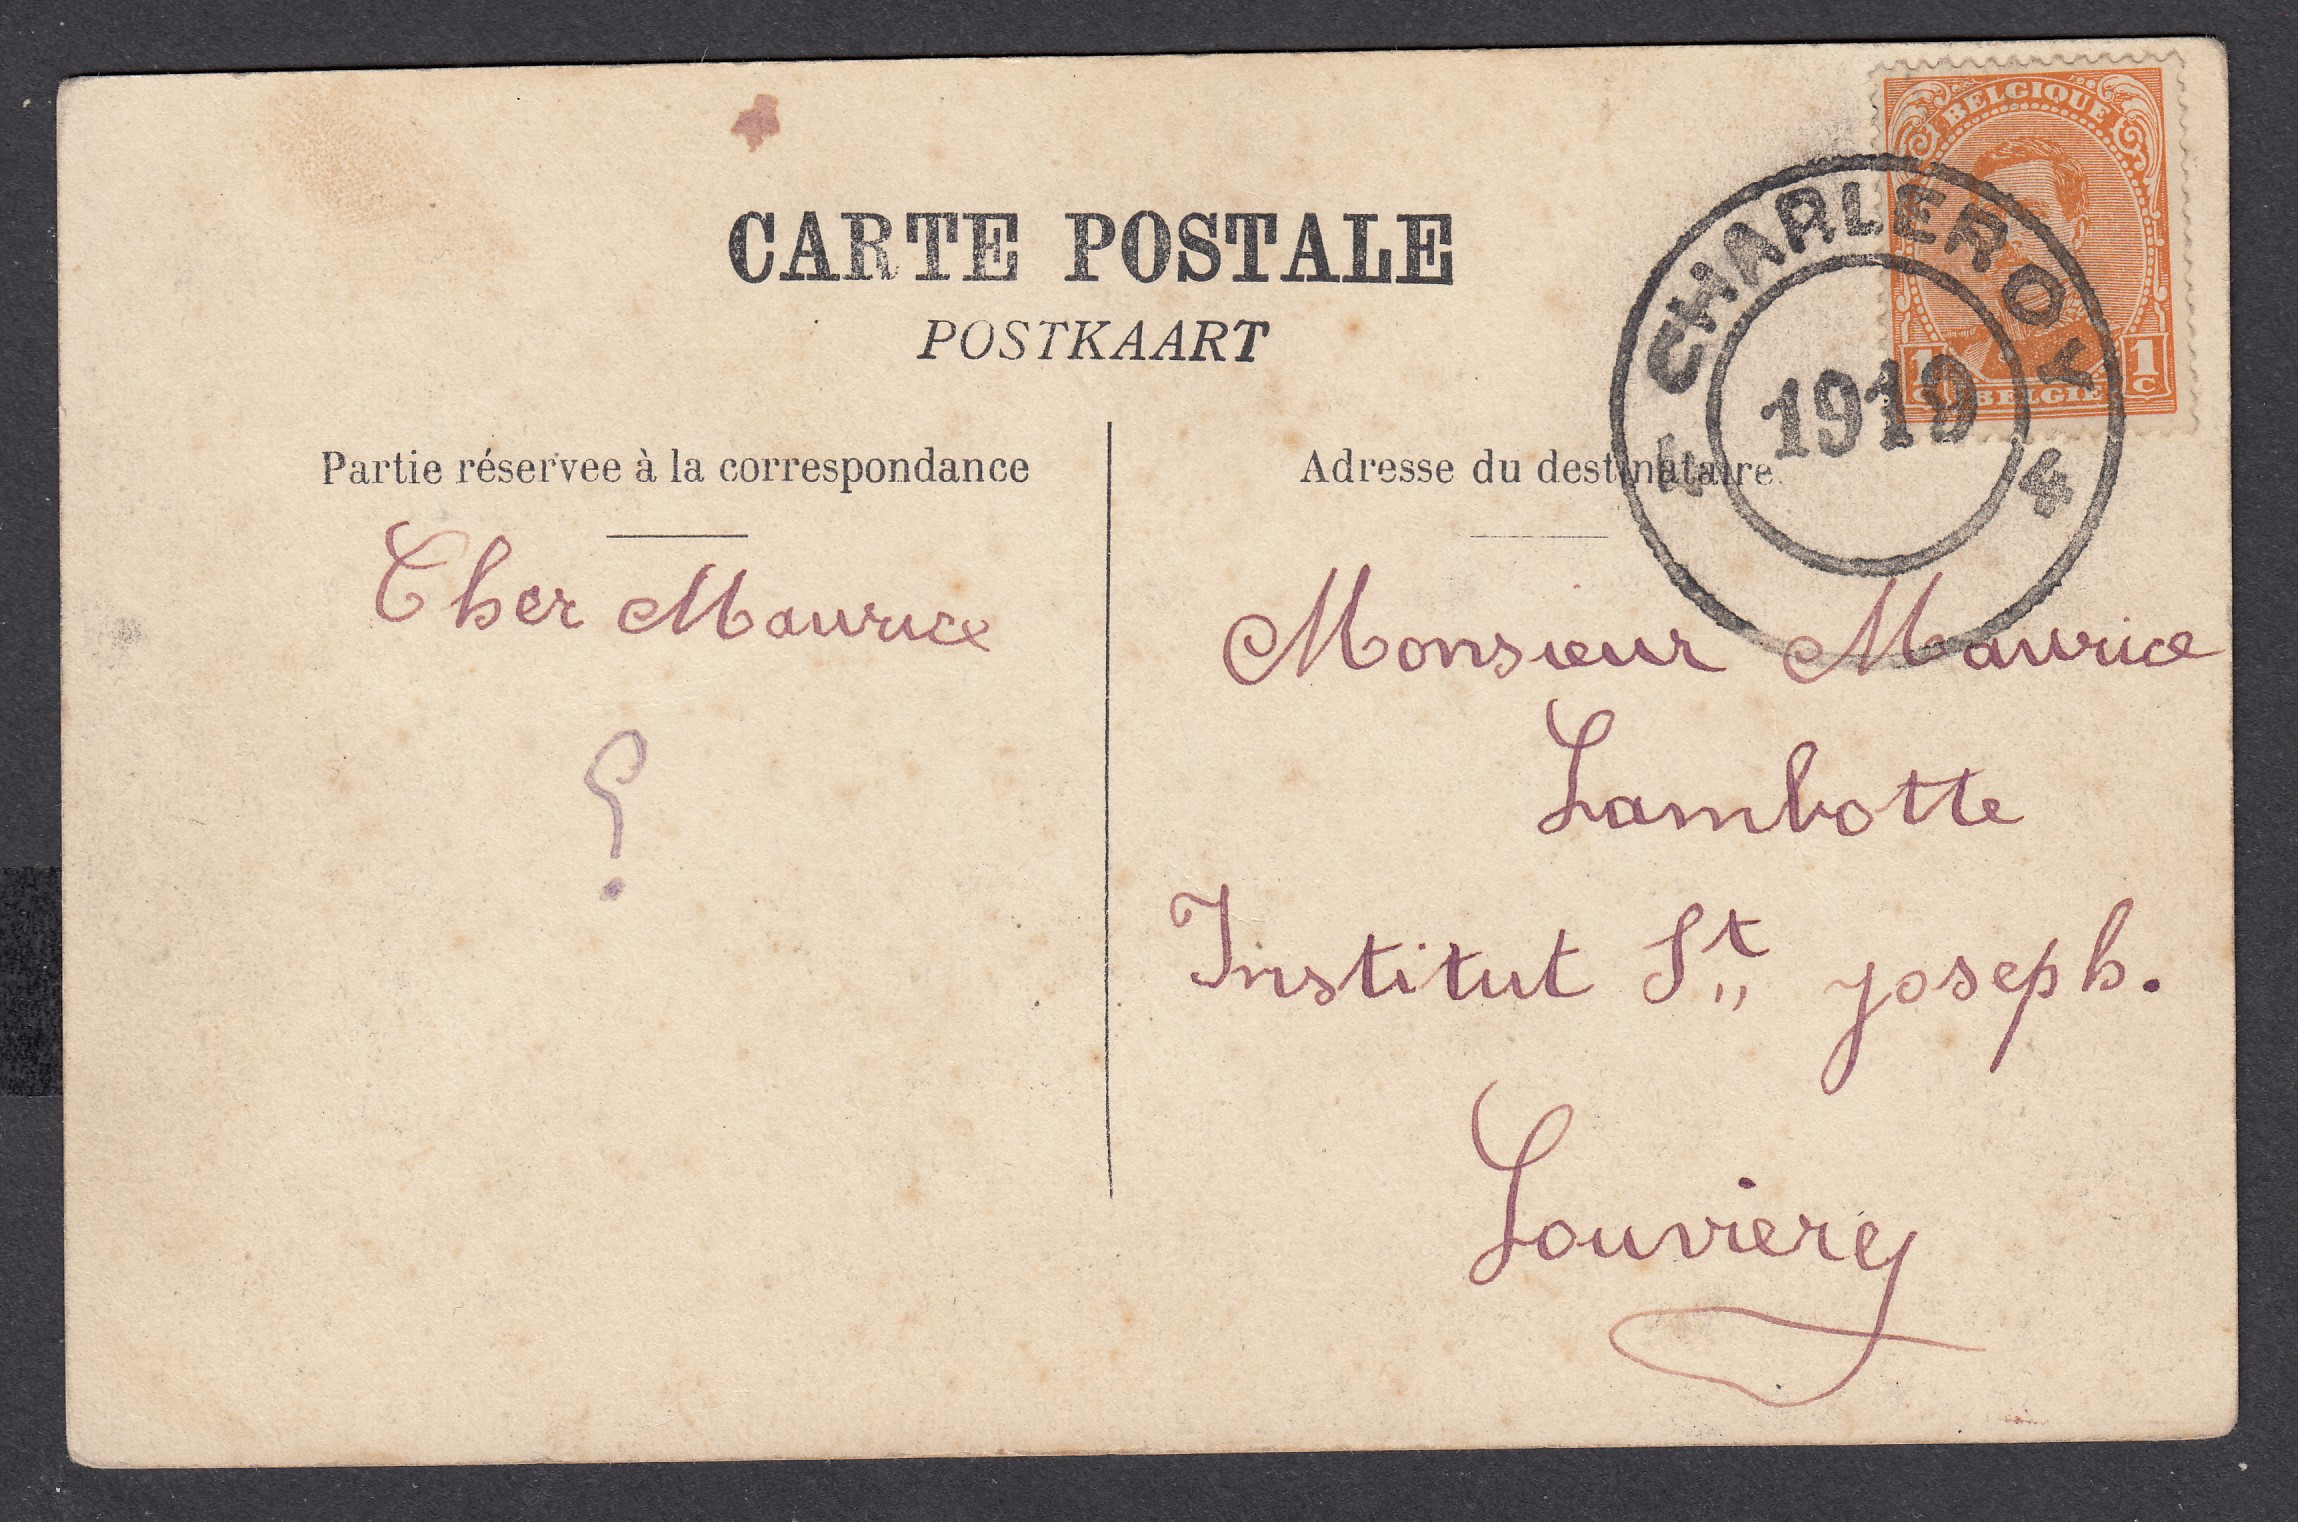 CARTE POSTALE
POSTKAART
BELGIQUE
1 1
C C
BELGIË
4 CHARLEROY 4
1919
Partie réservee à la correspondance
Cher Maurice
?
Adresse du destinataire
Monsieur Maurice
Lambotte
Institut St,, Joseph.
Louviery